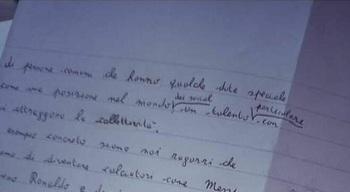 di persone comuni che hanno qualche dote speciale
come una posizione nel mondo dei social un talento particolare con
attraggono la collettività.
esempio concreto siamo noi ragazzi che
di diventare calciatori come Mess
Ronaldo e di